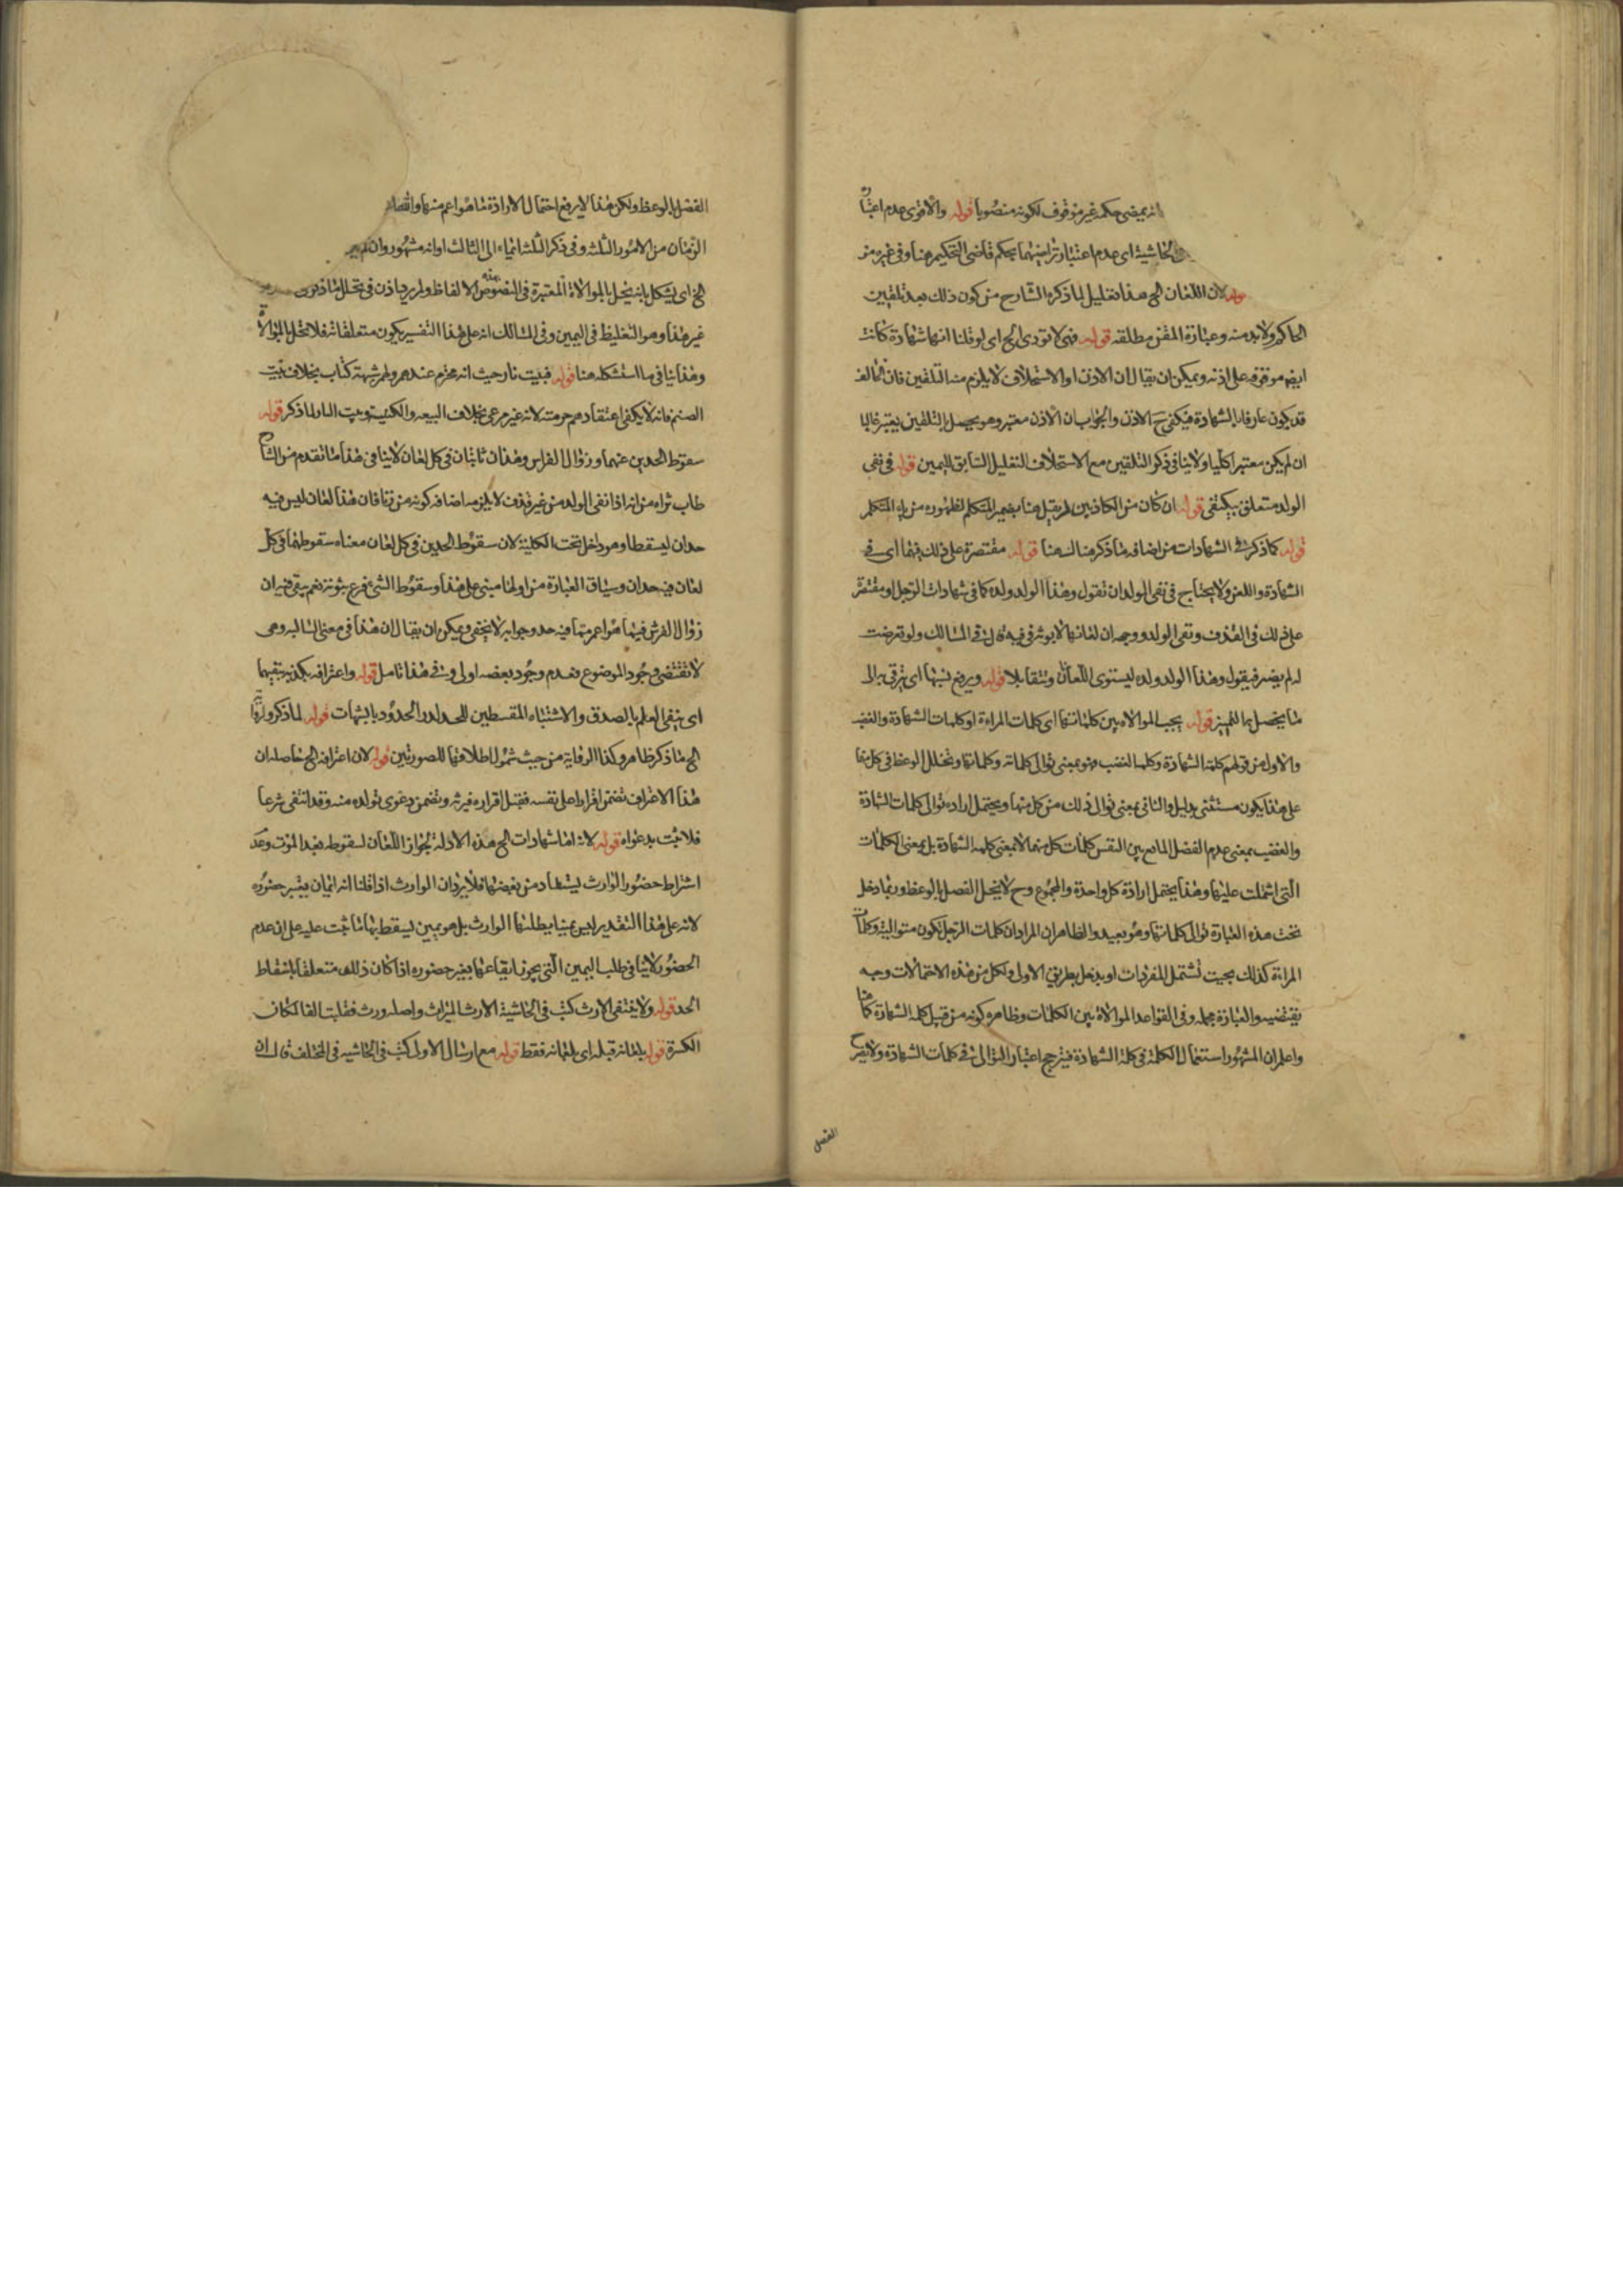 انه يمضى حكمه غير موقوف لكونه منصوبا قوله والاقوى عدم اعتبار
الحاشية اى عدم اعتبار تراضيهما بحكم قاضى التحكيم هنا وفى غيره من
قوله لان اللعان الخ هذا تعليل لما ذكره الشارح من كون ذلك بعد تلقين
الحاكم ولا بد منه وعبارة المتن مطلقه قوله فهى لا تودى الخ اى لو قلنا انها شهادة كانت
ايضا موقوفه على اذنه ويمكن ان يقال ان الاذن او الاستحلاف لا يلزم منه التلقين فان الحالف
قد يكون عارفا بالشهادة فيكفى ح الاذن والجواب ان الاذن معتبر وهو يحصل بالتلقين يعتبر غالبا
ان لم يكن معتبرا كليا ولا ينافى ذكر التلقين مع الاستحلاف التعليل السابق باليمين قوله فى نفى
الولد متعلق بيكتفى قوله ان كان من الكاذبين لم يقل هنا بضمير المتكلم لظهوره من ياء المتكلم
قوله كما ذكر فى الشهادات من اضافه ما ذكر هناك هنا قوله مقتصرة على ذلك فيها اى فى
الشهادة واللعن ولا يحتاج فى نفى الولد ان تقول وهذا الولد ولده كما فى شهادات الرجل او مقتصر
على ذلك فى القذف ونفى الولد ووجهه ان لعانها لا يوثر فيه قال فى المسالك ولو تعرضت
له لم يضر فيقول وهذا الولد ولده ليستوى اللعانان ويتقابلا قوله ويرفع نسبها اى يترقى به الى
ما يحصل به التمييز قوله يجب الموالاه بين كلماتها اى كلمات المراءة او كلمات الشهادة والغضب
والاول من قولهم كلمة الشهادة وكلمة الغضب فهو بمعنى توالى كلماته وكلماتها وتخلل الوعظ فى كل منهما
على هذا يكون مستثنى بدليل والثانى بمعنى توالى ذلك من كل منهما ويحتمل ارادة توالى كلمات الشهادة
والغضب بمعنى عدم الفصل المانع بين النفس كلمات كل منهما لا بمعنى كلمه الشهادة بل بمعنى الكلمات
التى اشتملت عليها وهذا يحتمل ارادة كل واحدة والمجموع وح لا يخل الفصل بالوعظ وربما دخل
تحت هذه العبارة توالى كلماتها وهو بعيد والظاهر ان المراد ان كلمات الرجل تكون متوالية وكلمات
المراة كذلك بحيث تشتمل المفردات او يدخل بطريق الاولى ولكل من هذه الاحتمالات وجه
يقتضيه والعبارة مجمله وفى القواعد الموالاة بين الكلمات وظاهره كونه من قبيل كلمه الشهادة كما هنا
واعلم ان المشهور استعمال الكلمة فى كلمة الشهادة فيترجح اعتبار التوالى فى كلمات الشهادة ولا يضر ح
الفصل
الفصل بالوعظ ولكن هذا لا يرفع احتمال الارادة مما هو اعم منها واتصال
الزمان من الامور الثلثه وفى ذكر الثلثه ايماء الى الثالث او انه مشهور وان لم
الخ اى يشكل بانه يخل بالموالاة المعتبرة فى النصوص الالفاظ ولم يرد اذن فى تخلل ما ذكر
غير هذا وهو التغليظ فى اليمين وفى المسالك انه على هذا التفسير يكون متعلقاته فلا تخل بالموالاة
وهذا ينافى ما استشكله هنا قوله فبيت نار حيث انه محترم عندهم ولهم شبهة كتاب بخلاف بيت
الصنم فانه لا يكفى اعتقادهم حرمته لانه غير مرعى بخلاف البيعه والكنيسة وبيت النار لما ذكر قوله
سقوط الحدين عنهما وزوال الفراش وهذان ثابتان فى كل لعان لا ينافى هذا ما تقدم من الشارح
طاب ثراه من انه اذا نفى الولد من غير قذف لا يلزمه اضافه كونه من زنا فان هذا لعان ليس فيه
حدان ليسقطا وهو داخل تحت الكلية لان سقوط الحدين فى كل لعان معناه سقوطهما فى كل
لعان فيه حدان وسياق العبارة من اولها مبنى على هذا وسقوط الشئ فرع ثبوته نعم يبقى فيه ان
زوال الفرش فيها هو اعم مما فيه حد وجوابه لا يخفى ويمكن ان يقال ان هذا فى معنى السالبه وهى
لا تقتضى وجود الموضوع فعدم وجود بعضه اولى وفى هذا تامل قوله واعترافه بكذبه ينفيها
اى ينفى العلم بالصدق والاشتباه المقسطين للحد لدرء الحدود بالشبهات قوله لما ذكر
الخ ما ذكر ظاهر وكذا الرواية من حيث شمول اطلاقها للصورتين قوله لان اعترافه الخ حاصله ان
هذا الاعتراف تضمن اقرارا على نفسه فقبل اقراره فيرثه وتضمن دعوى تولده منه وقد انتفى شرعا
فلا يثبت بدعواه قوله لانه اما شهادات الخ هذه الادلة لجواز اللعان لسقوطه بعد الموت وعدم
اشتراط حضور الوارث يستفاد من بعضها فلا يرد ان الوارث اذا قلنا انه ايمان يعتبر حضوره
لانه على هذا التقدير ليس يمينا يطلبها الوارث بل هو يمين ليسقط بها ما ثبت عليه على ان عدم
الحضور لا ينافى طلب اليمين التى يجوز ايقاعها بغير حضوره اذا كان ذلك متعلقا باسقاط
الحد قوله ولا ينتفى الارث كتب فى الحاشية الارث الميراث واصله ورث فقلبت الفا لمكان
الكسرة قوله بلعانه قبله اى بلعانه فقط قوله مع ارسال الاولى كتب فى الحاشيه فى المختلف قال ان